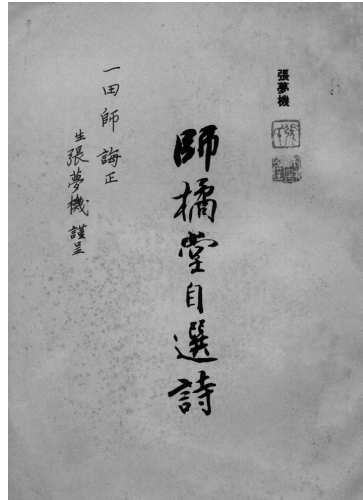 張夢機
師橘堂自選詩
一田師 誨正
生張夢機謹呈